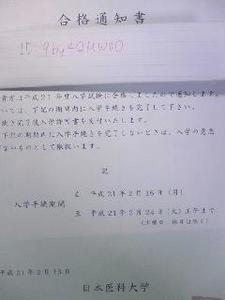 合格通知書
ID:9by4QHW00
貴方は平成21年度入学試験に合格しましたので通知します。
ついては、下記の期日内に入学手続きを完了して下さい。
続き完了後入学許可書を交付いたします。
下記の期日内に入学手続きを完了しないときは、入学の意志
がないものとして取扱います。
記
入学手続期間
自 平成21年2月16日(月)
至 平成21年2月24日(火)正午まで
(土曜日・休日は除く)
平成21年2月13日
日本医科大学